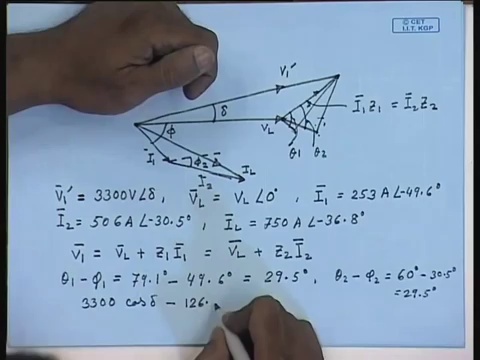 © CET
I.I.T. KGP
V̄₁′
δ
Ī₁z₁ = Ī₂z₂
V_L
φ
θ₁ θ₂
Ī₁
φ₂
I_L
Ī₂
V̄₁′ = 3300V∠δ, V̄_L = V_L∠0°, Ī₁ = 253A∠-49.6°
Ī₂ = 506A∠-30.5°, Ī_L = 750A∠-36.8°
V̄₁ = V̄_L + z₁Ī₁ = V̄_L + z₂Ī₂
θ₁-φ₁ = 79.1° - 49.6° = 29.5°, θ₂-φ₂ = 60° - 30.5°
= 29.5°
3300 cosδ - 126.